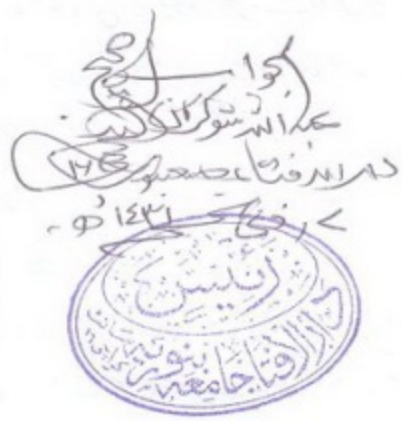 الجواب صحیح
عبد اللہ شوکت
دار الافتاء جامعہ بنوریہ
۱۴۳۱ھ
رئیس
دار الافتا جامعہ بنوریہ